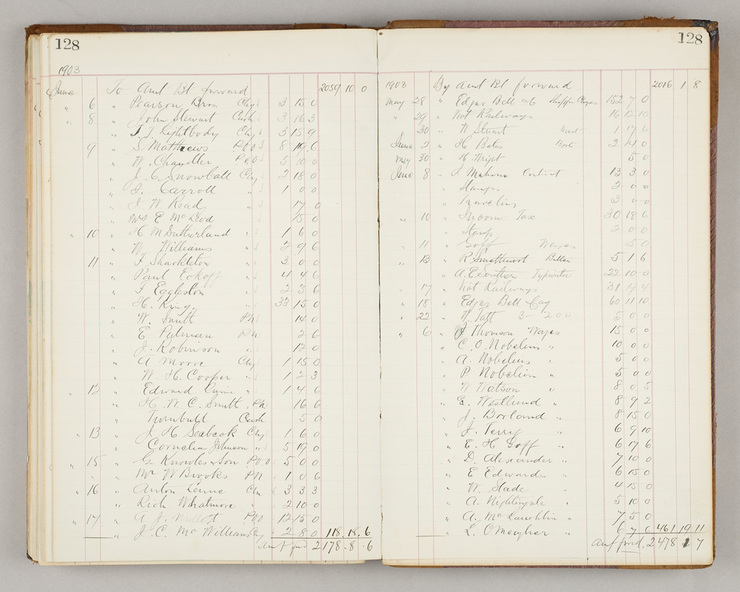 128
1903
June To Amt Bt forward 2059 10 0
" 6 " Pearson Bros Chq 3 15 0
" 8 " John Stewart Cash 3 16 3
" T. J. Lightbody Chq 3 15 9
9 " S. Matthews P.O.O 8 19 6
" W. Chandler P.O.O 5 10 0
" J. C. Snowball Chq 2 18 0
" J. Carroll " 1 0 0
" J W Road " 17 0
" Mrs E McLeod 15 0
" 10 " H M Sutherland " 1 6 0
" W Williams " 2 9 6
" 11 " F Shackleton " 3 0 0
" Paul Eckoff " 4 4 6
" F Eggleston " 2 2 6
" H. King " 33 15 0
" W. Smith PN 14 0
" E Pulman PN 2 6
" J. Robinson " 12 0
" A Moore Chq 1 15 0
" W H Cooper " 1 2 3
" 12 " Edward " 1 4 6
" H. W. C. Smith PN 16 6
" Cash 5 0
" 13 " J. H. Seabrook Chq 1 6 0
" Cornelia Johnson " 5 19 0
" 15 " G Knowles & Son P.O.O 5 0 0
" " Mr W Brooks PN 1 0 6
" 16 " Anton Chq 3 3 3
" Leih Whatmore " 2 10 0
" 17 " A. J. POO 12 15 0
" J. C. McWilliams 2 8 0 118 18 6
Amt fwd 2178 8 6
128
1903 By Amt Bt forward 2016 1 8
May 28 " Edgar Bell & Co 152 7 0
" 29 " Vict Railways 16 12 10
30 " W Stuart 1 7 6
June 2 " H Bates 2 4 0
May 30 " H. Wright 5 0
June 8 " Contract 13 3 0
" 2 0 0
" Travelling 3 0 0
" 10 " Income Tax 30 18 6
" Stamps 2 0 0
" 11 " Goff Wages 5 0
" 13 " R Smethurst 5 1 6
" A. 22 10 0
" 17 " Vict Railways 31 9 4
" 18 " Edgar Bell Coy 60 11 10
" 22 " W Tatt 5 0 0
" 6 " J Thomson Wages 15 0 0
" C. O. Nobelius " 10 0 0
" A. Nobelius " 5 0 0
" P Nobelius " 5 0 0
" W Watson " 8 0 5
" E. Westlund " 8 9 2
" J. Borland " 8 15 0
" J. Perry " 6 9 10
" E. H Goff " 6 17 6
" D. Alexander " 7 10 0
" E Edwards " 6 15 0
" W. Slade " 4 15 0
" A. Nightingale " 5 10 0
" A. McLauchlin " 7 5 0
" L. O'Meagher " 6 7 6 461 19 11
Amt fwd. 2478 1 7